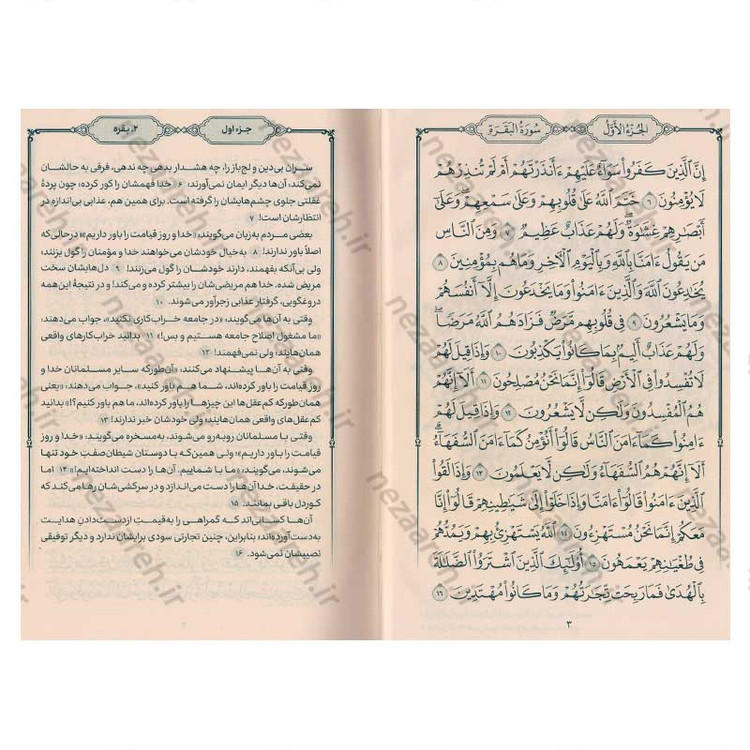 الجزء الأول
سورة البقرة
إِنَّ ٱلَّذِينَ كَفَرُوا۟ سَوَآءٌ عَلَيْهِمْ ءَأَنذَرْتَهُمْ أَمْ لَمْ تُنذِرْهُمْ
لَا يُؤْمِنُونَ ٦ خَتَمَ ٱللَّهُ عَلَىٰ قُلُوبِهِمْ وَعَلَىٰ سَمْعِهِمْ ۖ وَعَلَىٰٓ
أَبْصَٰرِهِمْ غِشَٰوَةٌ ۖ وَلَهُمْ عَذَابٌ عَظِيمٌ ٧ وَمِنَ ٱلنَّاسِ
مَن يَقُولُ ءَامَنَّا بِٱللَّهِ وَبِٱلْيَوْمِ ٱلْءَاخِرِ وَمَا هُم بِمُؤْمِنِينَ ٨
يُخَٰدِعُونَ ٱللَّهَ وَٱلَّذِينَ ءَامَنُوا۟ وَمَا يَخْدَعُونَ إِلَّآ أَنفُسَهُمْ
وَمَا يَشْعُرُونَ ٩ فِى قُلُوبِهِم مَّرَضٌ فَزَادَهُمُ ٱللَّهُ مَرَضًا ۖ
وَلَهُمْ عَذَابٌ أَلِيمٌۢ بِمَا كَانُوا۟ يَكْذِبُونَ ١٠ وَإِذَا قِيلَ لَهُمْ
لَا تُفْسِدُوا۟ فِى ٱلْأَرْضِ قَالُوٓا۟ إِنَّمَا نَحْنُ مُصْلِحُونَ ١١ أَلَآ إِنَّهُمْ
هُمُ ٱلْمُفْسِدُونَ وَلَٰكِن لَّا يَشْعُرُونَ ١٢ وَإِذَا قِيلَ لَهُمْ
ءَامِنُوا۟ كَمَآ ءَامَنَ ٱلنَّاسُ قَالُوٓا۟ أَنُؤْمِنُ كَمَآ ءَامَنَ ٱلسُّفَهَآءُ ۗ
أَلَآ إِنَّهُمْ هُمُ ٱلسُّفَهَآءُ وَلَٰكِن لَّا يَعْلَمُونَ ١٣ وَإِذَا لَقُوا۟
ٱلَّذِينَ ءَامَنُوا۟ قَالُوٓا۟ ءَامَنَّا وَإِذَا خَلَوْا۟ إِلَىٰ شَيَٰطِينِهِمْ قَالُوٓا۟ إِنَّا
مَعَكُمْ إِنَّمَا نَحْنُ مُسْتَهْزِءُونَ ١٤ ٱللَّهُ يَسْتَهْزِئُ بِهِمْ وَيَمُدُّهُمْ
فِى طُغْيَٰنِهِمْ يَعْمَهُونَ ١٥ أُو۟لَٰٓئِكَ ٱلَّذِينَ ٱشْتَرَوُا۟ ٱلضَّلَٰلَةَ
بِٱلْهُدَىٰ فَمَا رَبِحَت تِّجَٰرَتُهُمْ وَمَا كَانُوا۟ مُهْتَدِينَ ١٦
٣
جزء اول
٢. بقره
سران بی‌دین و لج‌باز را، چه هشدار بدهی چه ندهی، فرقی به حالشان
نمی‌کند؛ آن‌ها دیگر ایمان نمی‌آورند؛ ۶ خدا فهمشان را کور کرده؛ چون پردهٔ
غفلتی جلوی چشم‌هایشان را گرفته است. برای همین هم، عذابی بی‌اندازه در
انتظارشان است! ۷
بعضی مردم به زبان می‌گویند: «خدا و روز قیامت را باور داریم»؛ درحالی‌که
اصلاً باور ندارند! ۸ به‌خیال خودشان می‌خواهند خدا و مؤمنان را گول بزنند؛
ولی بی‌آنکه بفهمند، دارند خودشان را گول می‌زنند! ۹ دل‌هایشان سخت
مریض شده. خدا هم مریضی‌شان را بیشتر کرده و می‌کند؛ و در نتیجهٔ این‌همه
دروغگویی، گرفتار عذابی زجرآور می‌شوند. ۱۰
وقتی به آن‌ها می‌گویند: «در جامعه خراب‌کاری نکنید»، جواب می‌دهند:
«ما مشغول اصلاح جامعه هستیم و بس!» ۱۱ بدانید خراب‌کارهای واقعی
همان‌هایند؛ ولی نمی‌فهمند! ۱۲
وقتی به آن‌ها پیشنهاد می‌کنند: «آن‌طورکه سایر مسلمانان خدا و
روز قیامت را باور کرده‌اند، شما هم باور کنید»، جواب می‌دهند: «یعنی
همان‌طورکه کم‌عقل‌ها این چیزها را باور کرده‌اند، ما هم باور کنیم؟!» بدانید
کم‌عقل‌های واقعی همان‌هایند؛ ولی خودشان خبر ندارند! ۱۳
وقتی با مسلمانان روبه‌رو می‌شوند، به‌مسخره می‌گویند: «خدا و روز
قیامت را باور داریم»؛ ولی همین‌که با دوستان شیطان‌صفتِ خود تنها
می‌شوند، می‌گویند: «ما با شماییم. آن‌ها را دست انداخته‌ایم!» ۱۴ اما
در حقیقت، خدا آن‌ها را دست می‌اندازد و در سرکشی‌شان رها می‌کند که
کوردل باقی بمانند. ۱۵
آن‌ها کسانی‌اند که گمراهی را به‌قیمتِ ازدست‌دادنِ هدایت
به‌دست‌آورده‌اند؛ بنابراین، چنین تجارتی سودی برایشان ندارد و دیگر توفیقی
نصیبشان نمی‌شود. ۱۶
nezaareh.ir